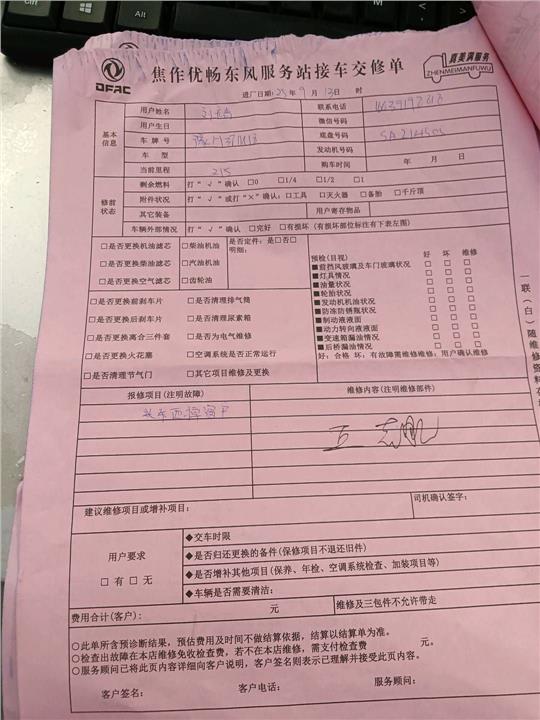 Ctrl
Alt
DFAC
焦作优畅东风服务站接车交修单
真美满服务
ZHENMEIMANFUWU
进厂日期: 25年 9月 13日 时
基本信息
用户姓名 联系电话
用户生日 微信号码
车牌号 底盘号码
车型 发动机号码
当前里程 215 购车时间 年 月 日
修前状态
剩余燃料 打“√”确认 □0 □1/4 □1/2 □1
附件状况 打“√”或打“×”确认: □工具 □灭火器 □备胎 □千斤顶
其它装备 用户寄存物品
车辆外部情况 打“√”确认 □完好 □有损坏 (有损坏部位标注有下表左图)
□是否更换机油滤芯 □柴油机油 是否定件: 是□否□
明细:
□是否更换柴油滤芯 □汽油机油
□是否更换空气滤芯 □齿轮油
□是否更换前刹车片 □是否清理排气筒
□是否更换后刹车片 □是否清理尿素箱
□是否更换离合三件套 □是否为电气维修
□是否更换火花塞 □空调系统是否正常运行
□是否清理节气门 □其它项目维修及更换
预检(目视) 好 坏 维修
■前挡风玻璃及车门玻璃状况 □ □ □
■灯具情况 □ □ □
■油量状况 □ □ □
■轮胎状况 □ □ □
■发动机机油状况 □ □ □
■防冻防锈瓶状况 □ □ □
■制动液液面 □ □ □
■动力转向液液面 □ □ □
■变速箱漏油情况 □ □ □
■后桥漏油情况 □ □ □
好: 合格 坏: 有故障需维修维修: 用户确认维修
一联(白)随维修资料存
报修项目(注明故障) 维修内容(注明维修部件)
王志
建议维修项目或增补项目: 司机确认签字:
用户要求
□有 □无
◆交车时限
◆是否归还更换的备件(保修项目不退还旧件)
◆是否增补其他项目(保养、年检、空调系统检查、加装项目等)
◆车辆是否需要清洁:
费用合计(客户): 元 维修及三包件不允许带走
○此单所含预诊断结果，预估费用及时间不做结算依据，结算以结算单为准。
○检查出故障在本店维修免收检查费，若不在本店维修，需支付检查费 元。
○服务顾问已将此页内容详细向客户说明，客户签名则表示已理解并接受此页内容。
客户签名: 客户电话: 服务顾问: